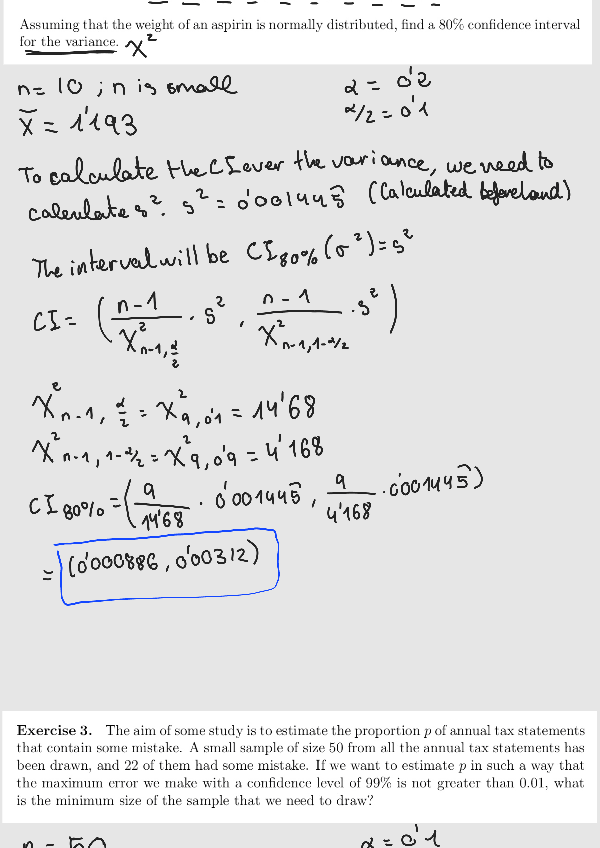 Assuming that the weight of an aspirin is normally distributed, find a 80% confidence interval
for the variance. χ²
n = 10 ; n is small
α = 0'2
x̄ = 1'193
α/2 = 0'1
To calculate the CI over the variance, we need to
calculate s². s² = 0'001445̂ (Calculated beforehand)
The interval will be CI₈₀%(σ²) = s²
CI = ( (n-1)/χ²ₙ₋₁,α/2 · s² , (n-1)/χ²ₙ₋₁,₁₋α/2 · s² )
χ²ₙ₋₁, α/2 = χ²₉,₀'₁ = 14'68
χ²ₙ₋₁, ₁₋α/2 = χ²₉,₀'₉ = 4'168
CI₈₀% = ( 9/14'68 · 0'001445̂ , 9/4'168 · 0'001445̂ )
= (0'000886 , 0'00312)
Exercise 3. The aim of some study is to estimate the proportion p of annual tax statements
that contain some mistake. A small sample of size 50 from all the annual tax statements has
been drawn, and 22 of them had some mistake. If we want to estimate p in such a way that
the maximum error we make with a confidence level of 99% is not greater than 0.01, what
is the minimum size of the sample that we need to draw?
n = 50
α = 0'1